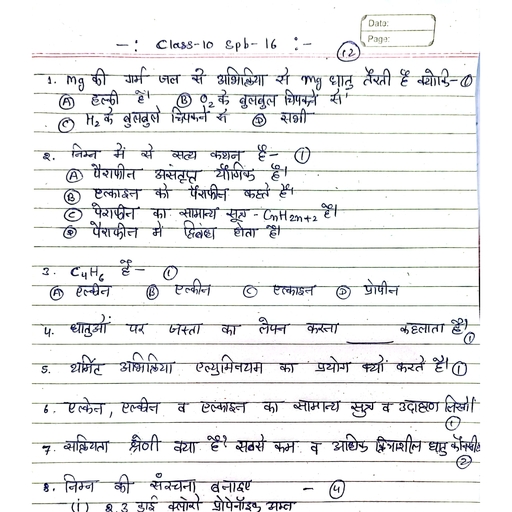 Date:
Page:
-: Class-10 Spb-16 :-
(12)
1. Mg की गर्म जल से अभिक्रिया से Mg धातु तैरती है क्योंकि- (1)
(A) हल्की है। (B) O2 के बुलबुले चिपकने से।
(C) H2 के बुलबुले चिपकने से (D) सभी
2. निम्न में से सत्य कथन है- (1)
(A) पैराफीन असंतृप्त यौगिक है।
(B) एल्काइन को पैराफीन कहते है।
(C) पैराफीन का सामान्य सूत्र - CnH2n+2 है।
(D) पैराफीन में द्विबंध होता है।
3. C4H6 है- (1)
(A) एल्कीन (B) एल्कीन (C) एल्काइन (D) प्रोपीन
4. धातुओं पर जस्ता का लेपन करना _____ कहलाता है। (1)
5. थर्मिट अभिक्रिया एल्युमिनियम का प्रयोग क्यों करते है। (1)
6. एल्केन, एल्कीन व एल्काइन का सामान्य सूत्र व उदाहरण लिखो।
(1)
7. सक्रियता श्रेणी क्या है? सबसे कम व अधिक क्रियाशील धातु कौनसी
(2)
8. निम्न की संरचना बनाइए - (4)
(i) 2,3 डाई क्लोरो प्रोपेनॉइक अम्ल